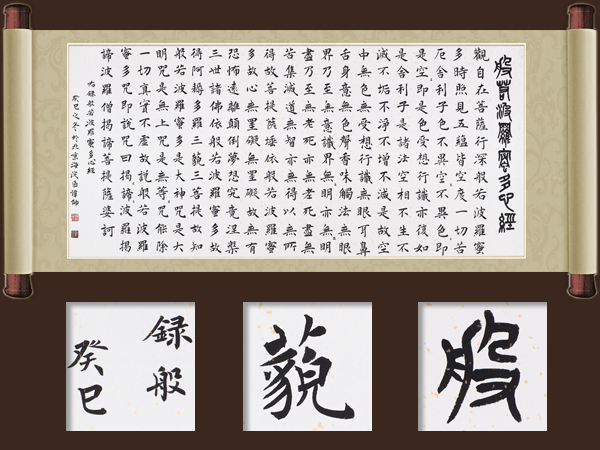 般若波羅蜜多心經
觀自在菩薩行深般若波羅蜜
多時照見五蘊皆空度一切苦
厄舍利子色不異空〻不異色〻即
是空〻即是色受想行識亦復如
是舍利子是諸法空相不生不
滅不垢不淨不增不減是故空
中無色無受想行識無眼耳鼻
舌身意無色聲香味觸法無眼
界乃至無意識界無〻明亦無無明
盡乃至無老死亦無老死盡無
苦集滅道無智亦無得以無所
得故菩提薩埵依般若波羅蜜
多故心無罣礙無罣礙故無有
恐怖遠離顛倒夢想究竟涅槃
三世諸佛依般若波羅蜜多故
得阿耨多羅三藐三菩提故知
般若波羅蜜多是大神咒是大
明咒是無上咒是無等〻咒能除
一切真實不虛故說般若波羅
蜜多咒即說咒曰揭〻諦〻波羅揭
諦波羅僧揭諦菩提薩婆訶
右錄般若波羅蜜多心經
癸巳之冬於北京海淀
録般
癸巳
藐
般